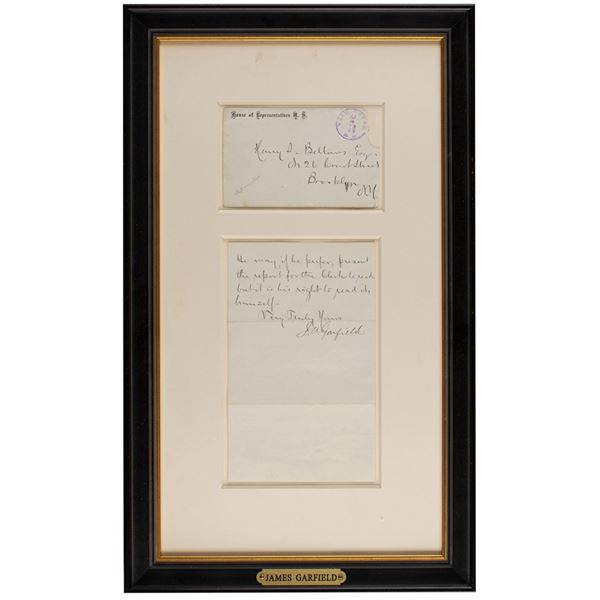 House of Representatives U. S.
Harry D. Bellows Esq.
No 26 Court Street
Brooklyn
N.Y.
He may, if he prefer, present
the report for the Clerk to read
but it is his right to read it,
himself—
Very Truly Yours
J. A. Garfield
JAMES GARFIELD